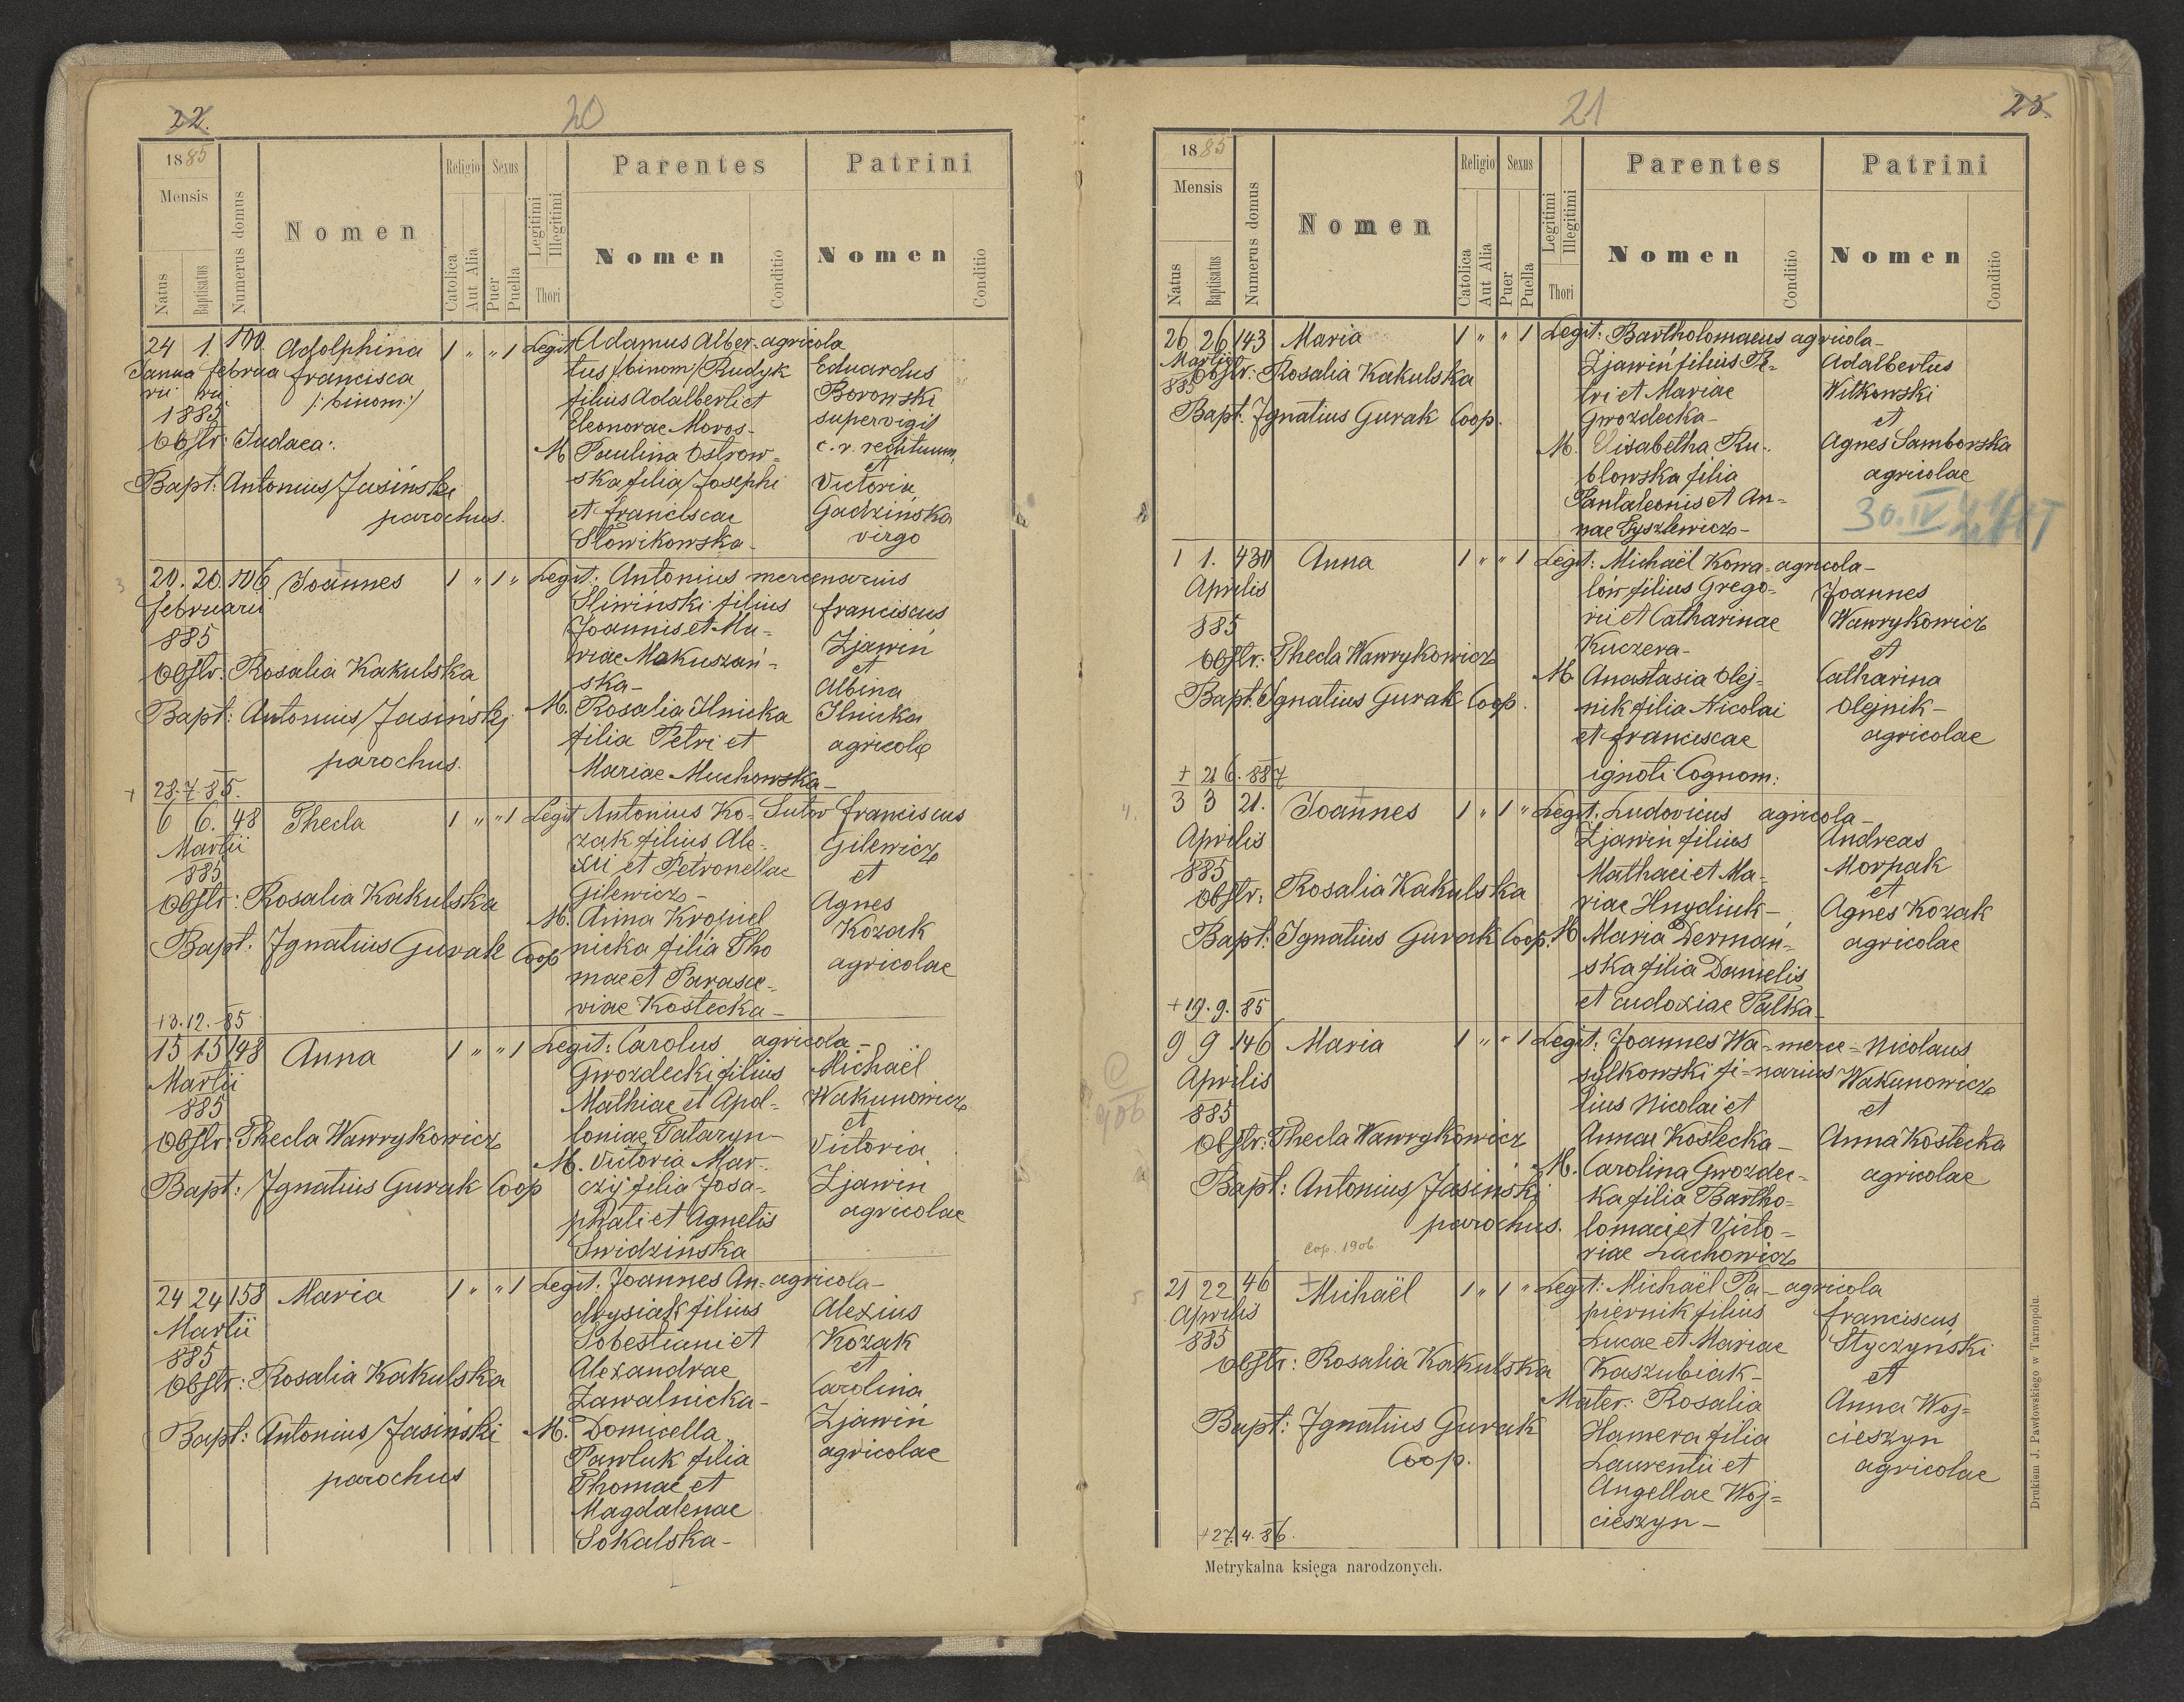 22.
20
1885
Mensis
Natus
Baptisatus
Numerus domus
Nomen
Religio
Catolica
Aut Alia
Sexus
Puer
Puella
Legitimi
Illegitimi
Thori
Parentes
Nomen
Conditio
Patrini
Nomen
Conditio
24 1. 100 Adolphina 1 " " 1 Legit Adamus Alber- agricola
Janua februa francisca tus /:binom:/ Rudyk Eduardus
rii rii /:binom:/ filius Adalberti et Borowski
1885 Eleonorae Moros- supervigil
Obstr: Judaea: M. Paulina Ostrow- c. r. reddituum,
et
Bapt: Antonius Jasiński ska filia Josephi Victoria
parochus. et franciscae Gadzińska
Słowikowska- virgo
20. 20. 106 Joannes 1 " 1 " Legit: Antonius mercenarius
februarii Śliwiński filius franciscus
885 Joannis et Ma- Zjawin
riae Makuszań- et
Obstr: Rosalia Kakulska ska- Albina
Bapt: Antonius Jasiński M. Rosalia Ilnicka Ilnicka
parochus. filia Petri et agricolae
+ 28.7.85. Mariae Muchowska-
6 6. 48 Thecla 1 " " 1 Legit Antonius Ko- Sutor franciscus
Martii zak filius Ale- Gilewicz
885 xii et Petronellae et
Obstr: Rosalia Kakulska Gilewicz- Agnes
M. Anna Kropiel Kozak
Bapt: Ignatius Gurak Coop nicka filia Tho agricolae
mae et Parasce-
+3.12.85 viae Kostecka-
15 15 148 Anna 1 " " 1 Legit: Carolus agricola-
Martii Gwozdecki filius Michaël
885 Mathiae et Apol- Wakunowicz
et
Obstr: Thecla Wawrykowicz loniae Tataryn- Victoria
M. Victoria Mar- Zjawin
Bapt: Ignatius Gurak Coop czij filia Josa- agricolae
phati et Agnetis
Swidzińska
24 24 158 Maria 1 " " 1 Legit: Joannes An- agricola-
Martii drysiak filius Alexius
885 Sobestiani et Kozak
Obstr: Rosalia Kakulska Alexandrae et
Zawalnicka- Carolina
Bapt: Antonius Jasiński M. Domicella Zjawin
parochus Pawluk filia agricolae
Thomae et
Magdalenae
Sokalska-
21
23.
1885
Mensis
Natus
Baptisatus
Numerus domus
Nomen
Religio
Catolica
Aut Alia
Sexus
Puer
Puella
Legitimi
Illegitimi
Thori
Parentes
Nomen
Conditio
Patrini
Nomen
Conditio
26 26 143 Maria 1 " " 1 Legit: Bartholomaeus agricola-
Martii Zjawin filius Pe- Adalbertus
885 Obstr: Rosalia Kakulska tri et Mariae Witkowski
Bapt: Ignatius Gurak Coop. Gwozdecka- et
M. Elisabetha Ru- Agnes Samborska
blowska filia agricolae
Pantaleonis et An- 30.IV
nae Tyszlewicz-
1 1. 430 Anna 1 " " 1 Legit: Michaël Kowa- agricola-
Aprilis lów filius Grego- Joannes
885 rii et Catharinae Wawrykowicz
Obstr: Thecla Wawrykowicz Kuczera- et
M. Anastasia Olej- Catharina
Bapt: Ignatius Gurak Coop. nik filia Nicolai Olejnik-
et franciscae agricolae
+ 21 6. 887 ignoti Cognom:
3 3 21. Joannes 1 " 1 " Legit: Ludovicus agricola-
Aprilis Zjawin filius Andreas
885 Mathaei et Ma- Morpak
Obstr: Rosalia Kakulska riae Hnydiuk- et
Agnes Kozak
Bapt: Ignatius Gurak Coop: M Maria Dermań- agricolae
ska filia Danielis
+ 19.9.85 et Eudoxiae Palka-
9 9 146 Maria 1 " " 1 Legit: Joannes Wa- merce- Nicolaus
Aprilis sylkowski fi- narius Wakunowicz
885 lius Nicolai et et
Obstr: Thecla Wawrykowicz Annae Kostecka- Anna Kostecka
M. Carolina Gwozdec- agricolae
Bapt: Antonius Jasiński ka filia Bartho-
parochus. lomaei et Victo-
Cop. 1906 riae Lachowicz
21 22 46 Michaël 1 " 1 " Legit: Michaël Pa- agricola
Aprilis piernik filius franciscus
885 Lucae et Mariae Styczyński
Obstr: Rosalia Kakulska Kaszubiak- et
Mater: Rosalia Anna Woj-
Bapt: Ignatius Gurak Hamera filia cieszyn
Coop. Laurentii et agricolae
Angellae Woj-
+27.4.86. cieszyn-
Metrykalna księga narodzonych.
Drukiem J. Pawłowskiego w Tarnopolu.